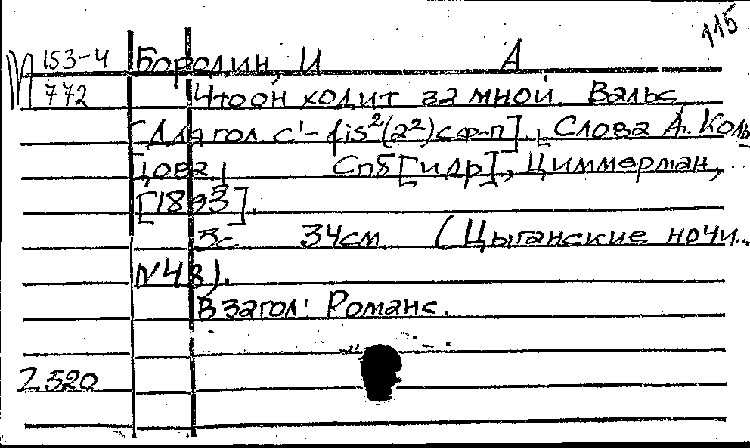 115
М 153-4 Бородин, И А.
772 Что он ходит за мной. Вальс.
[Для гол. c¹-fis²(a²) с ф-п]. Слова А. Коль
цова. Спб [и др], Циммерман,
[1893].
3с 34см (Цыганские ночи..
N48).
В загол: Романс.
2520